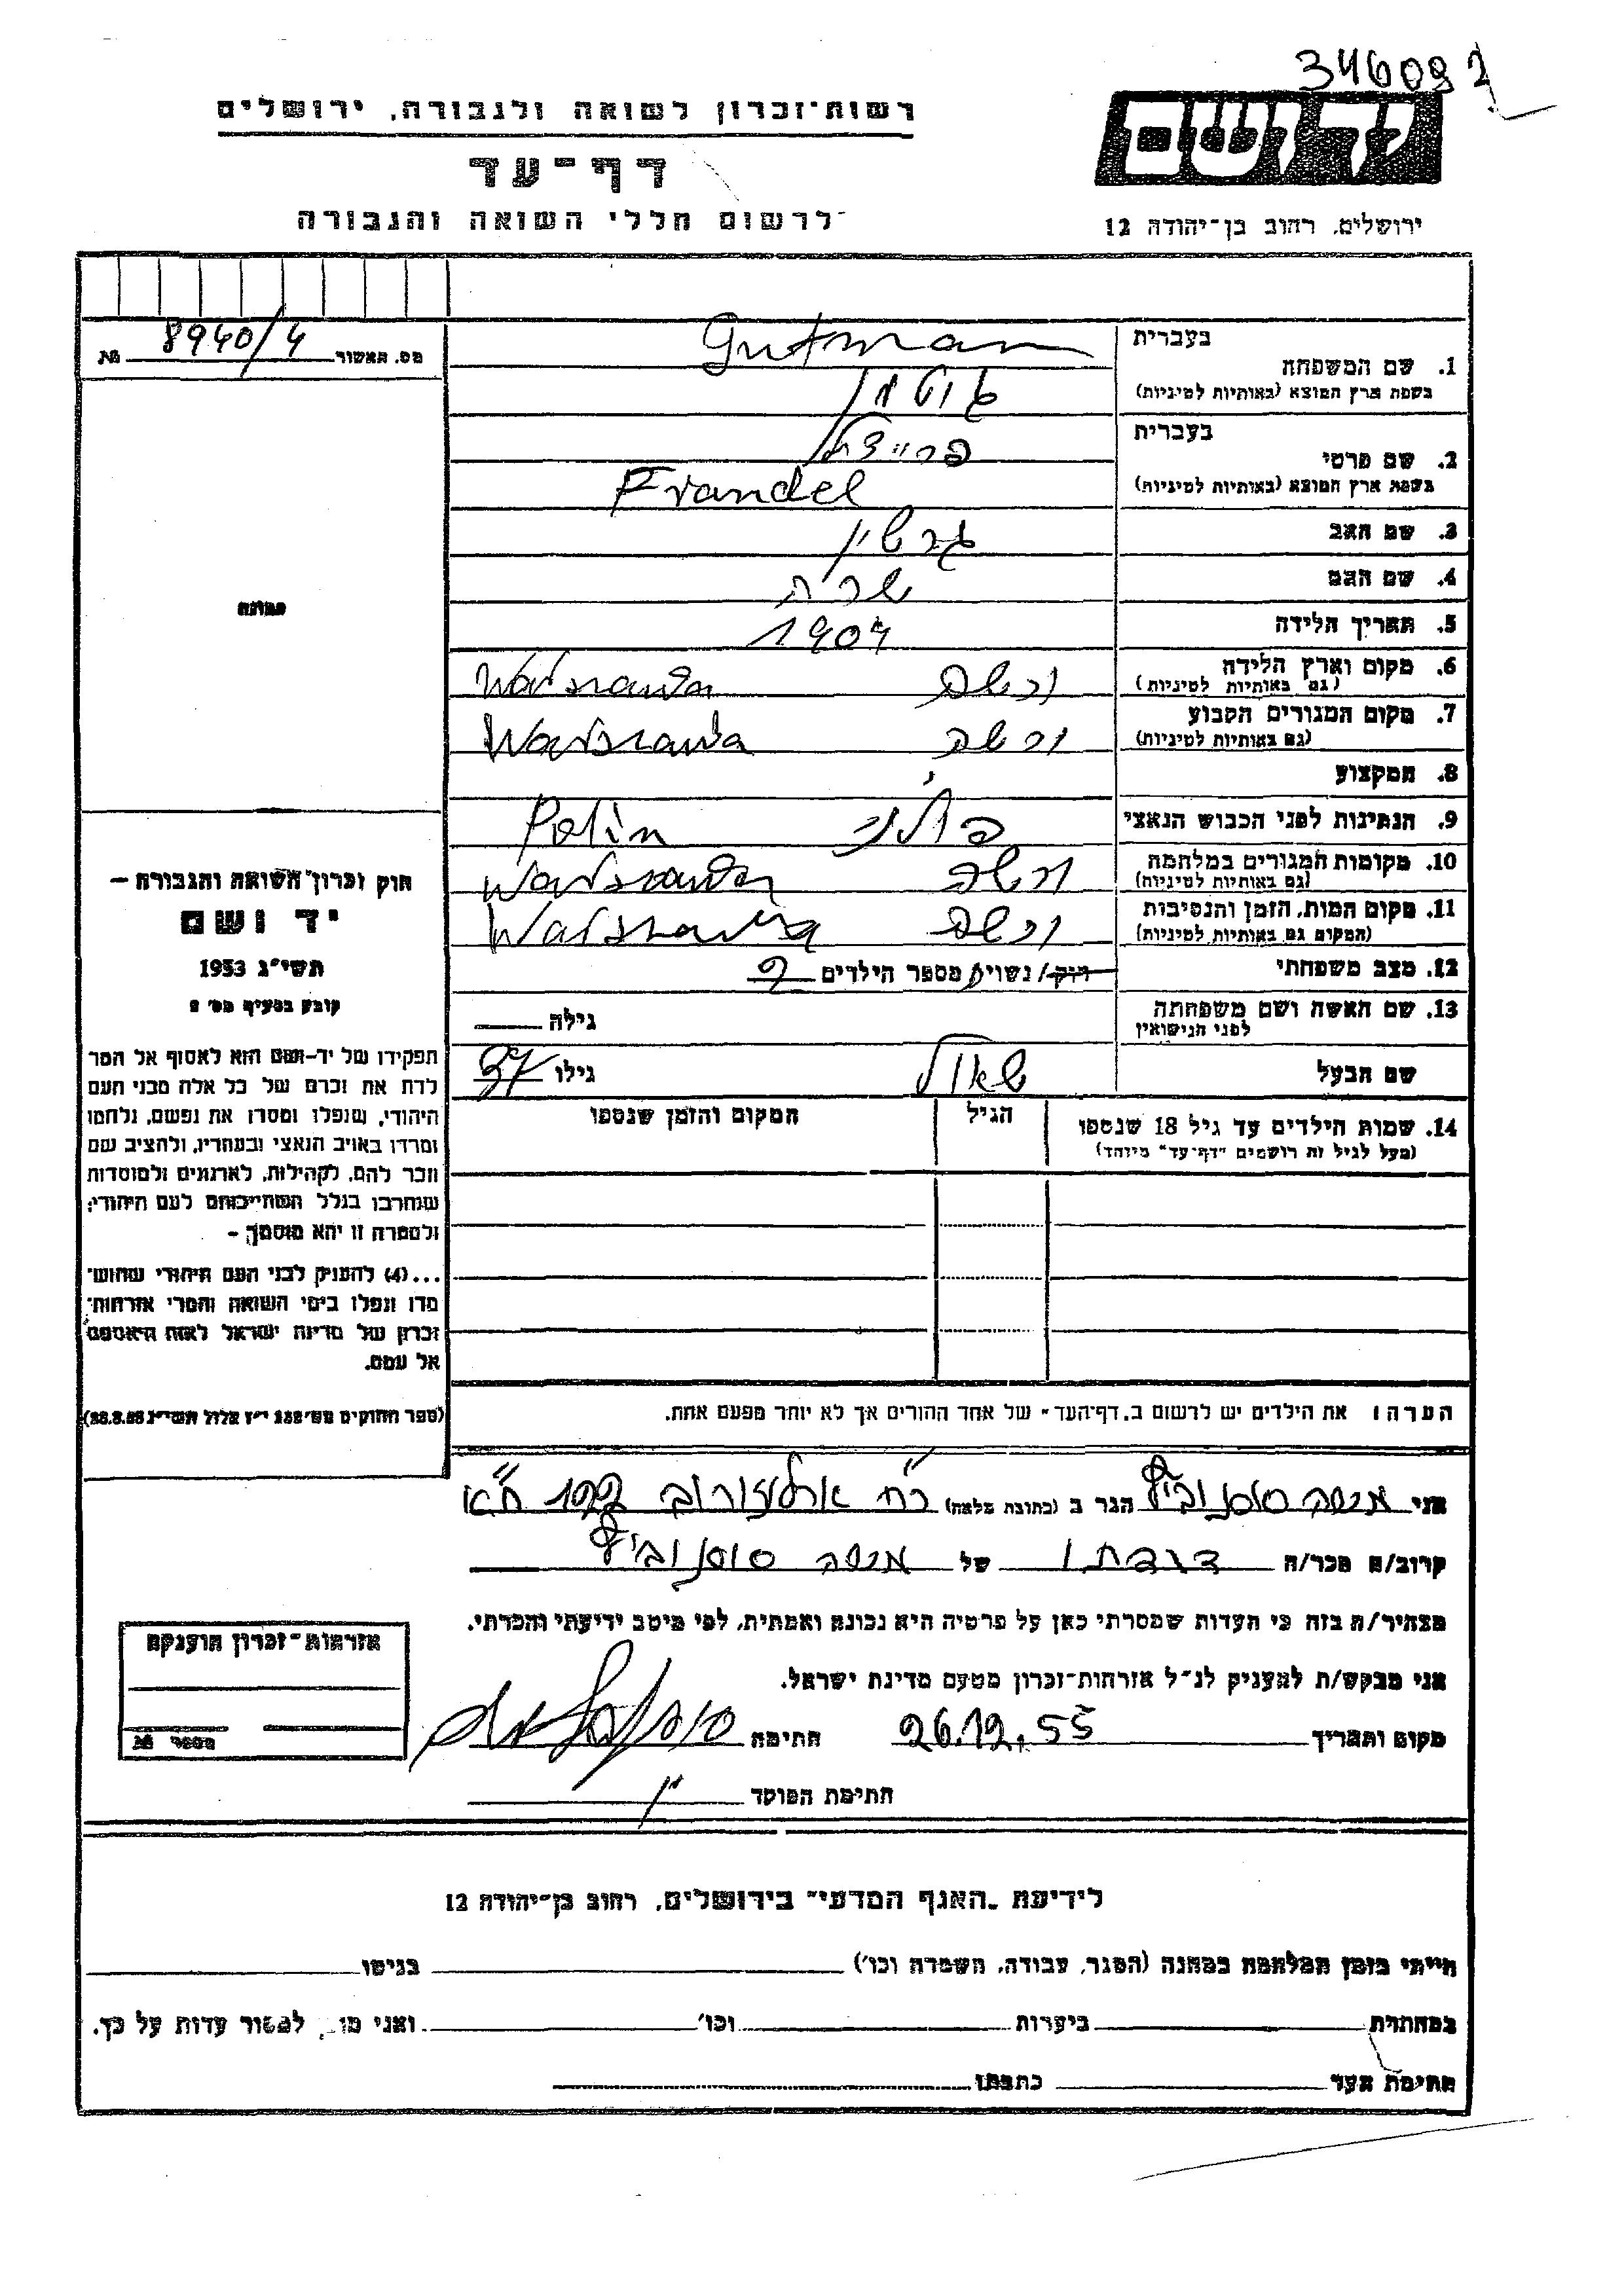 346092
רשות־זכרון לשואה ולגבורה, ירושלים
דף־עד
לרשום חללי השואה והגבורה
יד ושם
ירושלים, רחוב בן־יהודה 12
מס. תאשור 8940/4 №
בעברית Gutman
1. שם המשפחה
בשפת ארץ המוצא (באותיות לטיניות) גוטמן
בעברית
2. שם פרטי
בשפת ארץ המוצא (באותיות לטיניות) Frandel
3. שם האב גרשון
4. שם האם שרה
5. תאריך הלידה 1904
6. מקום וארץ הלידה ורשה Warszawa
(גם באותיות לטיניות)
7. מקום המגורים הקבוע ורשה Warszawa
(גם באותיות לטיניות)
8. המקצוע
9. הנתינות לפני הכבוש הנאצי פולני Polin
10. מקומות המגורים במלחמה ורשה Warszawa
(גם באותיות לטיניות)
11. מקום המות, הזמן והנסיבות ורשה Warszawa
(המקום גם באותיות לטיניות)
12. מצב משפחתי רוק/נשוי/ מספר הילדים 2
13. שם האשה ושם משפחתה גילה
לפני הנישואין
שם הבעל שאול גילו 37
14. שמות הילדים עד גיל 18 שנספו הגיל המקום והזמן שנספו
(מעל לגיל זה רושמים "דף־עד" מיוחד)
הערה: את הילדים יש לרשום ב"דף־העד" של אחד ההורים אך לא יותר מפעם אחת.
תמונה
חוק זכרון השואה והגבורה —
יד ושם
תשי"ג 1953
קובע בסעיף מס' 2
תפקידו של יד־ושם הוא לאסוף אל המו־
לדת את זכרם של כל אלה מבני העם
היהודי, שנפלו ומסרו את נפשם, נלחמו
ומרדו באויב הנאצי ובעוזריו, ולהציב שם
וזכר להם, לקהילות, לארגונים ולמוסדות
שנחרבו בגלל השתייכותם לעם היהודי;
ולמטרה זו יהא מוסמך —
...(4) להעניק לבני העם היהודי שהוש־
מדו ונפלו בימי השואה והמרי אזרחות־
זכרון של מדינת ישראל לאות היאספם
אל עמם.
(ספר החוקים מס' 132 י"ז אלול תשי"ג 28.8.53)
אני מנשה סוסנוביץ הגר ב (כתובת מלאה) רח' ארלוזורוב 122 ת"א
קרוב/ה מכר/ה של מנשה סוסנוביץ
מצהיר/ה בזה כי העדות שמסרתי כאן על פרטיה היא נכונה ואמתית, לפי מיטב ידיעתי והכרתי.
אני מבקש/ת להעניק לנ"ל אזרחות־זכרון מטעם מדינת ישראל.
מקום ותאריך 26.12.55 חתימה
חתימת הפוקד
אזרחות־זכרון הוענקה
מספר №
לידיעת "האגף המדעי" בירושלים, רחוב בן־יהודה 12
הייתי בזמן המלחמה במחנה (הסגר, עבודה, השמדה וכו') בגיטו
במחתרת ביערות וכו' ואני מו למסור עדות על כך.
חתימת העד כתבתו